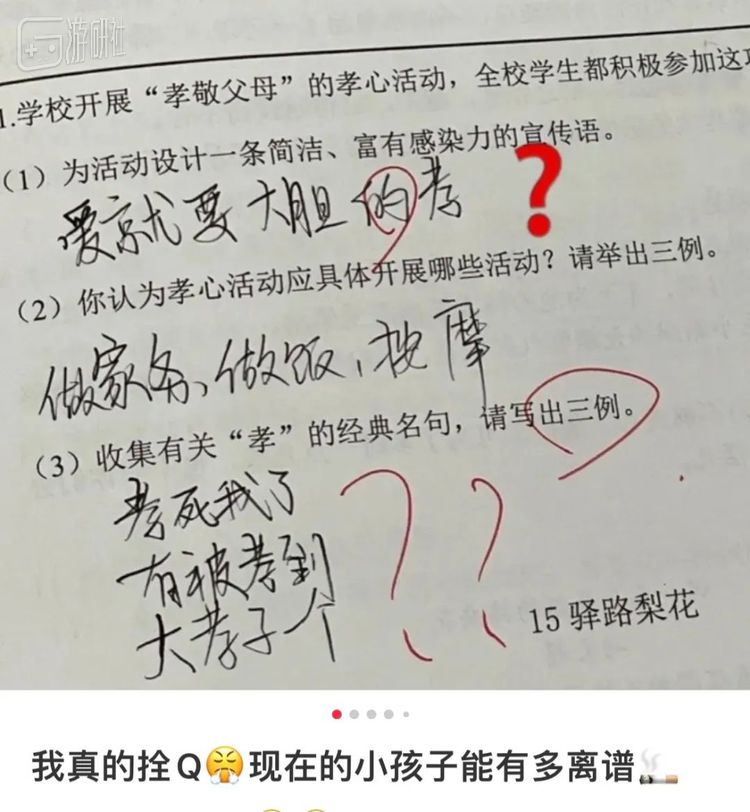 游研社
1.学校开展“孝敬父母”的孝心活动，全校学生都积极参加这项
（1）为活动设计一条简洁、富有感染力的宣传语。
爱就要大胆的孝
？
（2）你认为孝心活动应具体开展哪些活动？请举出三例。
做家务、做饭、按摩
（3）收集有关“孝”的经典名句，请写出三例。
孝死我了
有被孝到
大孝子一个
？？
15 驿路梨花
我真的拴Q😤现在的小孩子能有多离谱🚬